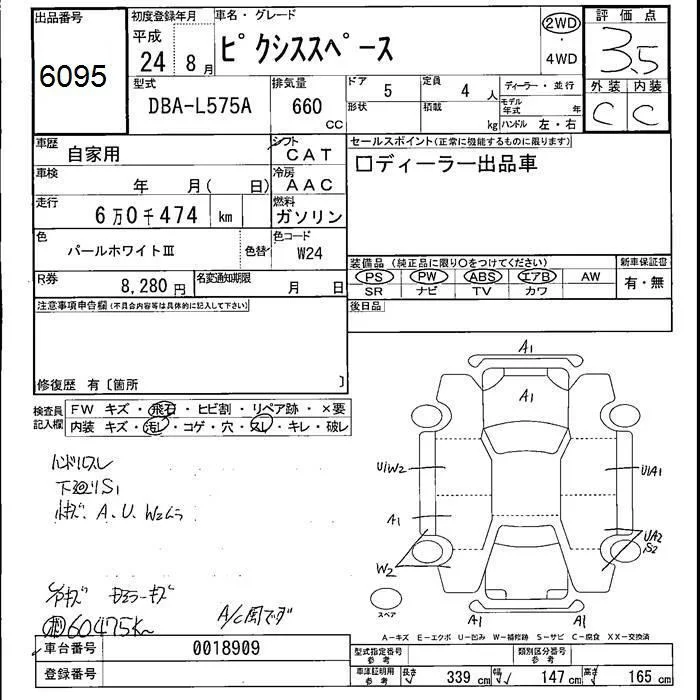 出品番号
6095
初度登録年月
平成
24 8月
車名・グレード
ピクシススペース
2WD
・
4WD
評価点
3.5
外装 内装
C C
型式
DBA-L575A
排気量
660
CC
ドア 5
形状
定員 4 人
積載 kg
ディーラー・並行
モデル年式 年
ハンドル 左・右
車歴
自家用
シフト
CAT
車検
年 月( 日)
冷房
AAC
走行
6万0千474 km
燃料
ガソリン
色
パールホワイトⅢ
色替
色コード
W24
R券
8,280円
名変通知期限
月 日
セールスポイント(正常に機能するものに限ります)
口ディーラー出品車
装備品 (純正品に限り○をつけてください)
PS PW ABS エアB AW
SR ナビ TV カワ
新車保証書
有・無
後日品
注意事項申告欄(不具合内容等は具体的に記入して下さい)
修復歴 有〔箇所 〕
検査員記入欄
FW キズ・飛石・ヒビ割・リペア跡・×要
内装 キズ・汚れ・コゲ・穴・スレ・キレ・破レ
ハンドルスレ
下廻りS1
キズ、A、U、W2
キズ
60475K
A/C
A1
A1
U1W2
U1A1
A1
UA2
S2
W2
スペア
A1
A1
A－キズ E－エクボ U－凹み W－補修跡 S－サビ C－腐食 XX－交換済
車台番号
0018909
登録番号
型式指定番号
参考
類別区分番号
参考
車庫証明用
参考
長さ 339 cm
幅 147 cm
高さ 165 cm